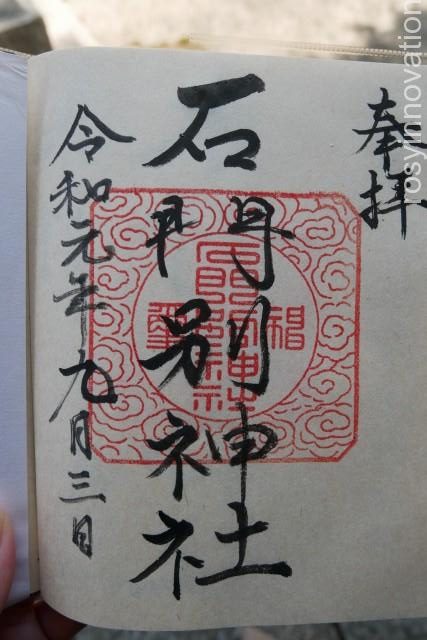 奉拝
石門別神社
令和元年九月三日
rosyinnovation